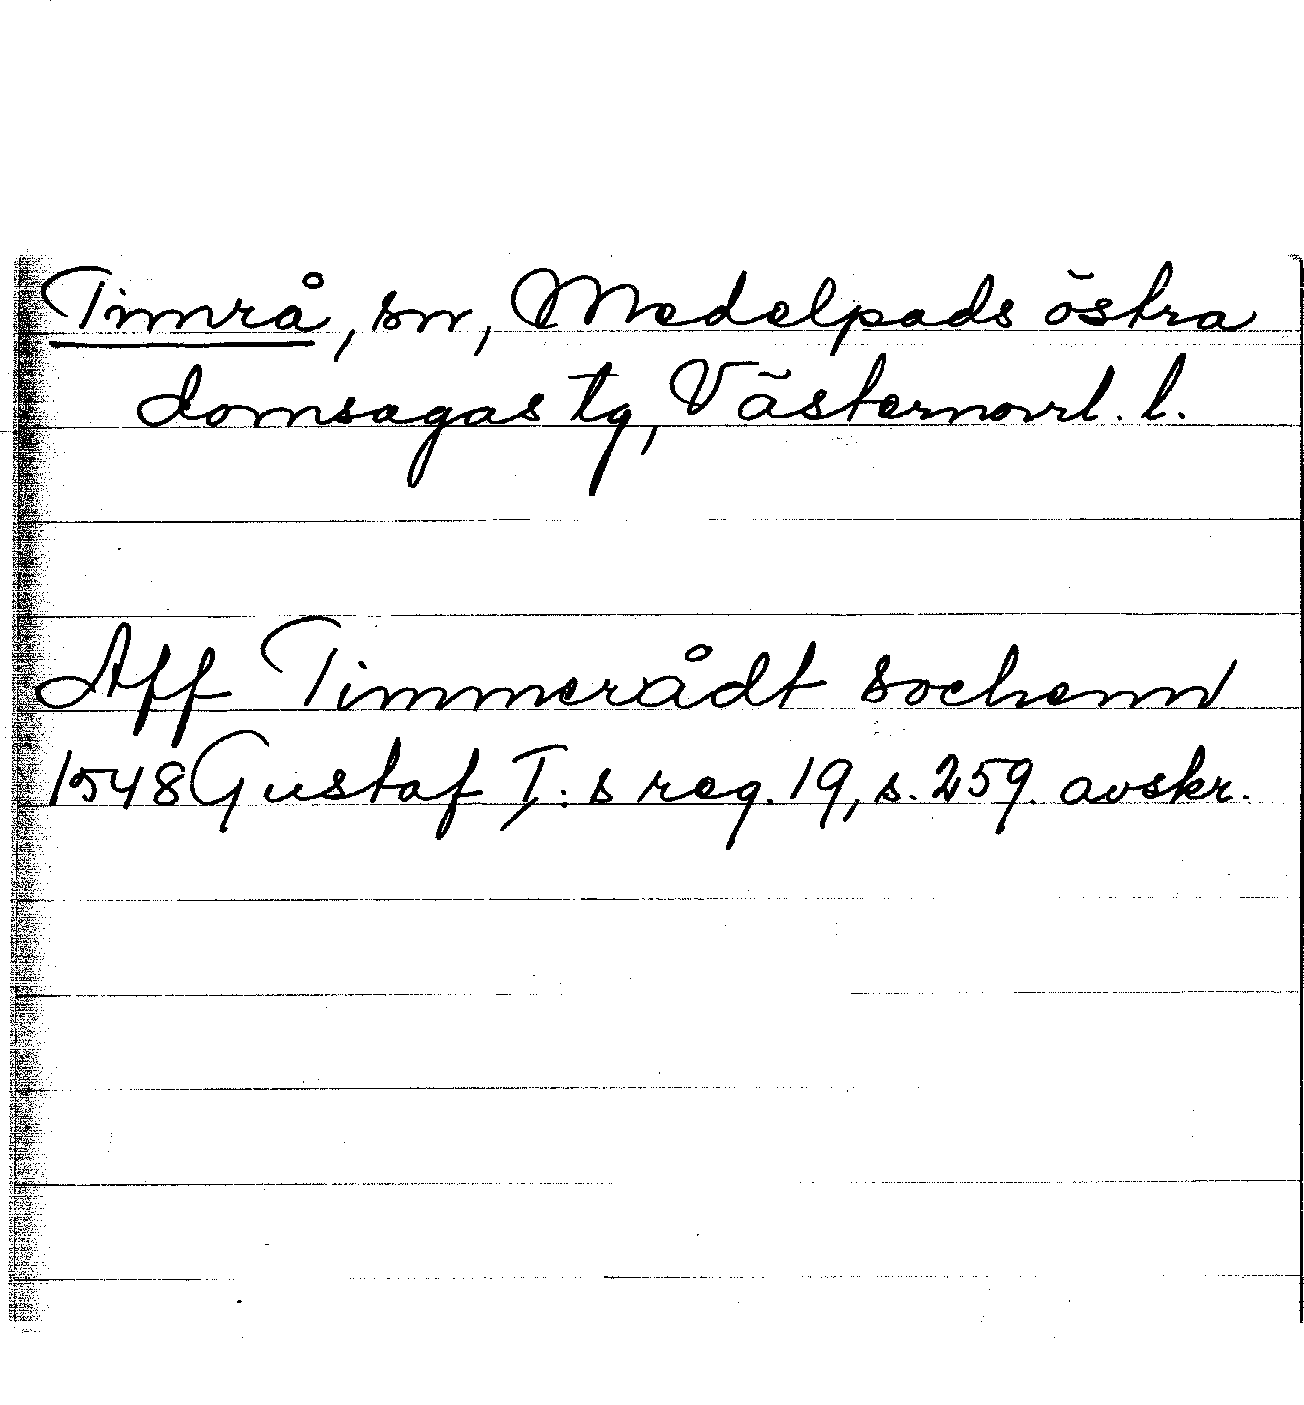 Timrå, sn, Medelpads östra
domsagas tg, Västernorrl. l.
Aff Timmerådt sochenn
1548 Gustaf I:s reg. 19, s. 259. avskr.